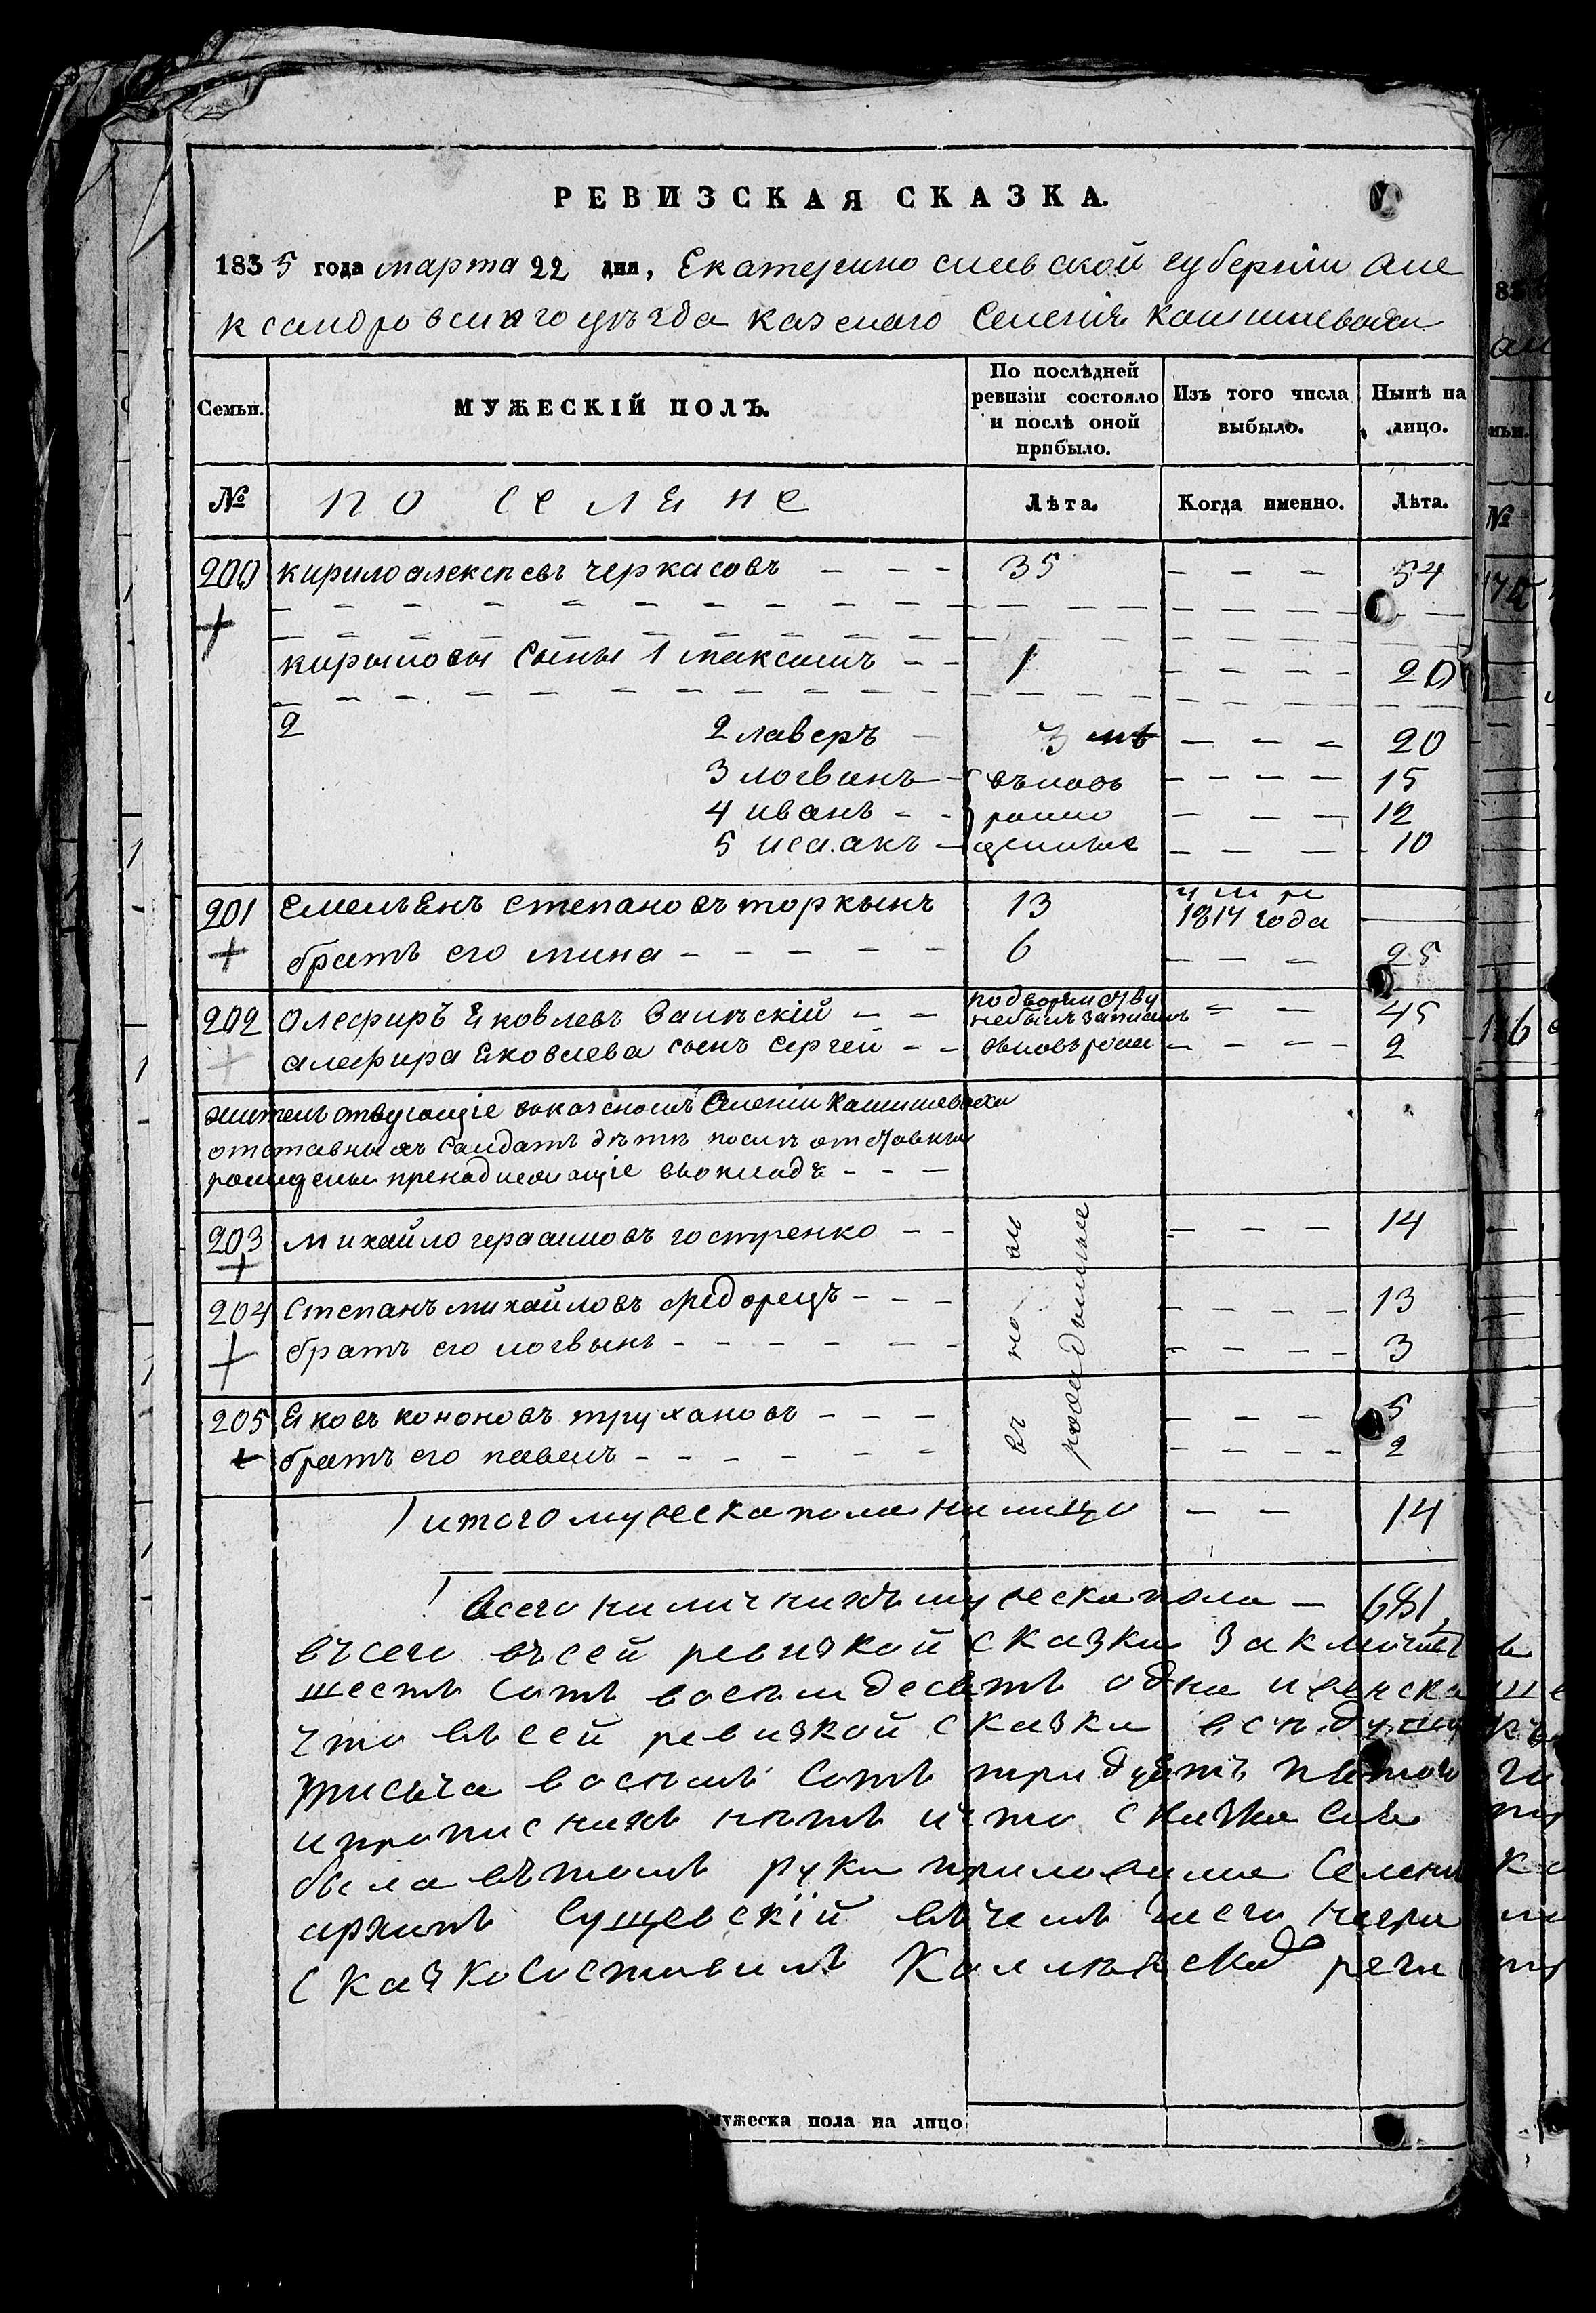 РЕВИЗСКАЯ СКАЗКА.
1835 года марта 22 дня, Екатерино славской губернии Але
ксандровскаго уѣзда казенаго Селения Камишевахи
Семьи. МУЖЕСКІЙ ПОЛЪ. По послѣдней ревизіи состояло и послѣ оной прибыло. Изъ того числа выбыло. Нынѣ на лицо.
№ поселяне Лѣта. Когда именно. Лѣта.
200 кирило алексѣевъ черкасовъ - - - 35 - - - 54
+
кирыловы сыны 1 максимъ - - 1 - - - - 20
2 2 лаверъ - 3 - - - 20
3 логвинъ - вьновь - - - - 15
4 иванъ - - рожио - - - 12
5 исаакъ - денные - - - - 10
201 емельЕнъ степановъ торкынъ 13 1817 года
+ братъ его мина - - - - - 6 - - - 25
202 Олефиръ Яковлевъ - - подворянству небылъ записанъ - - 45
+ алефира Яковлева сынъ сергей - - вьновь рож - - - - 2
жительствующіе вказеномъ Селеніи Камишевахи
отставныхъ Салдатъ дѣти послѣ отставки
рожидены пренадлежащіе вьокладъ - - -
203 михайло герасимовъ гостренко - - - - - 14
+
204 степанъ михайловъ федорецъ - - - - - - - 13
+ братъ его логвынъ - - - - - - - - - - 3
вь но вь рожаденные
205 Яковъ кононовъ трухановъ - - - - - - 5
+ братъ его павелъ - - - - - - - - - 2
итого мужеска пола на лицо - - 14
Всего наличнихъ мужеска пола - 681
вьсего въсей ревизкой сказки заключает
шесть сотъ восемьдесять одна иженска
что въсей ревизкой сказки
тисяча восемь сотъ тридцать пятого
ипрописнихъ нѣтъ ичто сказка сия
была вътомъ руки приложиле Селения
архипъ Сущевскій въчемъ
сказкосоставилъ реги
мужеска пола на лицо